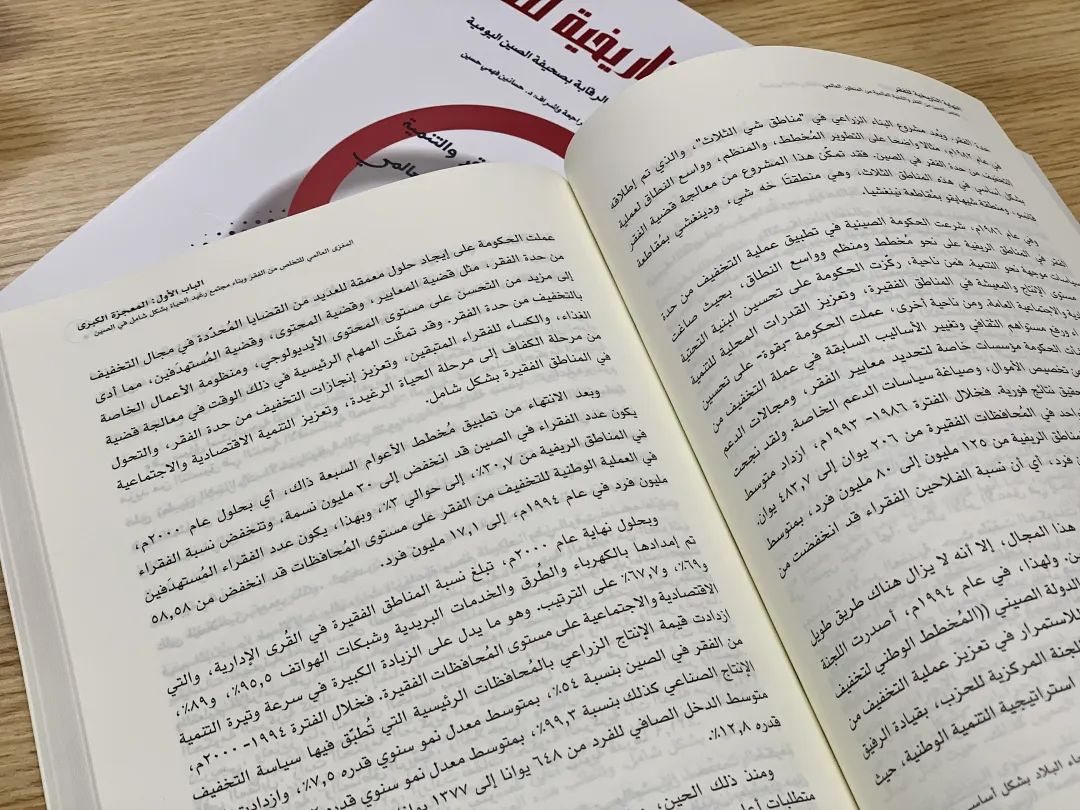 الرقابة بصحيفة الصين اليومية
وإشراف: د. حسانين فهمي حسين
والتنمية
حدة الفقر. ويُعد مشروع البناء الزراعي في "مناطق شي الثلاث"، والذي تم إطلاقه
في عام ١٩٨٢م، مثالًا واضحًا على التطوير المُخطط، والمنظم، وواسع النطاق لعملية
التخفيف من حدة الفقر في الصين. فقد تمكّن هذا المشروع من معالجة قضية الفقر
بشكل أساسي في هذه المناطق الثلاث، وهي منطقتا خه شي، ودينغشي بمُقاطعة
قانسو، ومنطقة شيهايقو بمُقاطعة نينغشيا.
وفي عام ١٩٨٦م، شرعت الحكومة الصينية في تطبيق عملية التخفيف من حدة
الفقر في المناطق الريفية على نحو مُخطط ومنظم وواسع النطاق، بحيث صاغت
سياسات موجهة نحو التنمية. فمن ناحية، ركّزت الحكومة على تحسين البنية التحتية
مستوى الإنتاج والمعيشة في المناطق الفقيرة، وتعزيز القدرات المحلية للتنمية
والاجتماعية العامة. ومن ناحية أخرى، عملت الحكومة "بقوة" على تحسين
رفع مستواهم الثقافي وتغيير الأساليب السابقة في عملية التخفيف من
الحكومة مؤسسات خاصة لتحديد معايير الفقر، ومجالات الدعم
تخصيص الأموال، وصياغة سياسات الدعم الخاصة. ولقد نجحت
تحقيق نتائج فورية. فخلال الفترة ١٩٨٦- ١٩٩٣م، ازداد متوسط
في المُحافظات الفقيرة من ٢٠٦ يوان إلى ٤٨٣,٧ يوان.
المناطق الريفية من ١٢٥ مليون إلى ٨٠ مليون فرد، بمتوسط
فرد، أي أن نسبة الفلاحين الفقراء قد انخفضت من
هذا المجال، إلا أنه لا يزال هناك طريق طويل
ولهذا، في عام ١٩٩٤م، أصدرت اللجنة
الدولة الصيني ((المُخطط الوطني لتخفيف
للاستمرار في تعزيز عملية التخفيف من
اللجنة المركزية للحزب، بقيادة الرفيق
استراتيجية التنمية الوطنية، حيث
البلاد بشكل
الباب الأول: المعجزة الكبرى
المغزى العالمي للتخلص من الفقر وبناء مجتمع رغيد الحياة بشكل شامل في الصين
عملت الحكومة على إيجاد حلول معمقة للعديد من القضايا المُحدّدة في مجال التخفيف
من حدة الفقر، مثل قضية المعايير، وقضية المحتوى، وقضية المُستهدَفين، مما أدى
إلى مزيد من التحسن على مستوى المحتوى الأيديولوجي، ومنظومة الأعمال الخاصة
بالتخفيف من حدة الفقر. وقد تمثّلت المهام الرئيسية في ذلك الوقت في معالجة قضية
الغذاء، والكساء للفقراء المتبقين، وتعزيز إنجازات التخفيف من حدة الفقر، والتحول
من مرحلة الكفاف إلى مرحلة الحياة الرغيدة، وتعزيز التنمية الاقتصادية والاجتماعية
في المناطق الفقيرة بشكل شامل.
وبعد الانتهاء من تطبيق مُخطط الأعوام السبعة ذاك، أي بحلول عام ٢٠٠٠م،
يكون عدد الفقراء في الصين قد انخفض إلى ٣٠ مليون نسمة، وتنخفض نسبة الفقراء
في المناطق الريفية من ٣٠,٧٪، إلى حوالي ٣٪، وبهذا، يكون عدد الفقراء المُستهدَفين
في العملية الوطنية للتخفيف من الفقر على مستوى المُحافظات قد انخفض من ٥٨,٥٨
مليون فرد في عام ١٩٩٤م، إلى ١٧,١ مليون فرد.
وبحلول نهاية عام ٢٠٠٠م، تبلغ نسبة المناطق الفقيرة في القُرى الإدارية، والتي
تم إمدادها بالكهرباء والطُرق والخدمات البريدية وشبكات الهواتف ٩٥,٥٪، و٨٩٪،
و٦٩٪، و٦٧,٧٪ على الترتيب. وهو ما يدل على الزيادة الكبيرة في سرعة وتيرة التنمية
الاقتصادية والاجتماعية على مستوى المُحافظات الفقيرة. فخلال الفترة ١٩٩٤- ٢٠٠٠م،
ازدادت قيمة الإنتاج الزراعي بالمُحافظات الرئيسية التي تُطبّق فيها سياسة التخفيف
من الفقر في الصين بنسبة ٥٤٪، بمتوسط معدل نمو سنوي قدره ٧,٥٪، وازدادت
الإنتاج الصناعي كذلك بنسبة ٩٩,٣٪، بمتوسط معدل نمو سنوي قدره
متوسط الدخل الصافي للفرد من ٦٤٨ يوانا إلى ١٣٧٧
قدره ١٢,٨٪.
ومنذ ذلك الحين،
متطلبات